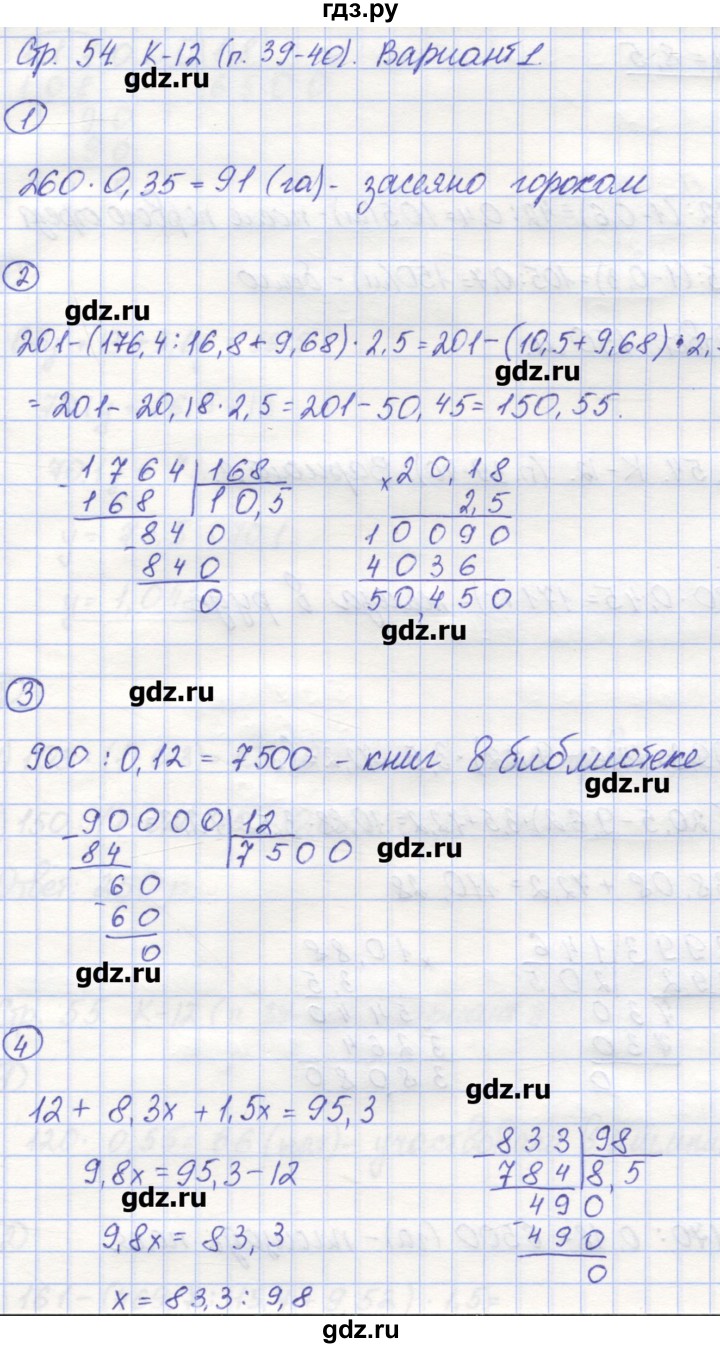 гдз.ру
Стр. 54 К-12 (п. 39-40). Вариант 1.
gdz.ru
1
260 · 0,35 = 91 (га) - засеяно горохом
2
gdz.ru
201-(176,4:16,8+9,68)·2,5=201-(10,5+9,68)·2,
gdz.ru
= 201- 20,18·2,5=201-50,45=150,55.
1764 168 × 20,18
168 10,5 2,5
840 10090
840 4036
0 50,450
gdz.ru
3
gdz.ru
900 : 0,12 = 7500 - книг в библиотеке
gdz.ru
90000 12
84 7500
gdz.ru
60
60
0
gdz.ru
4
gdz.ru
12 + 8,3x + 1,5x = 95,3
833 98
9,8x = 95,3-12
784 8,5
gdz.ru
490
9,8x = 83,3
490
0
x = 83,3 : 9,8
gdz.ru